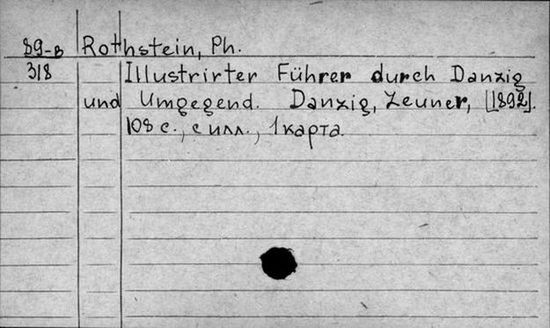 89-в Rothstein, Ph.
318 Illustrirter Führer durch Danzig
und Umgegend. Danzig, Zeuner, [1892].
108 с., с илл., 1 карта.